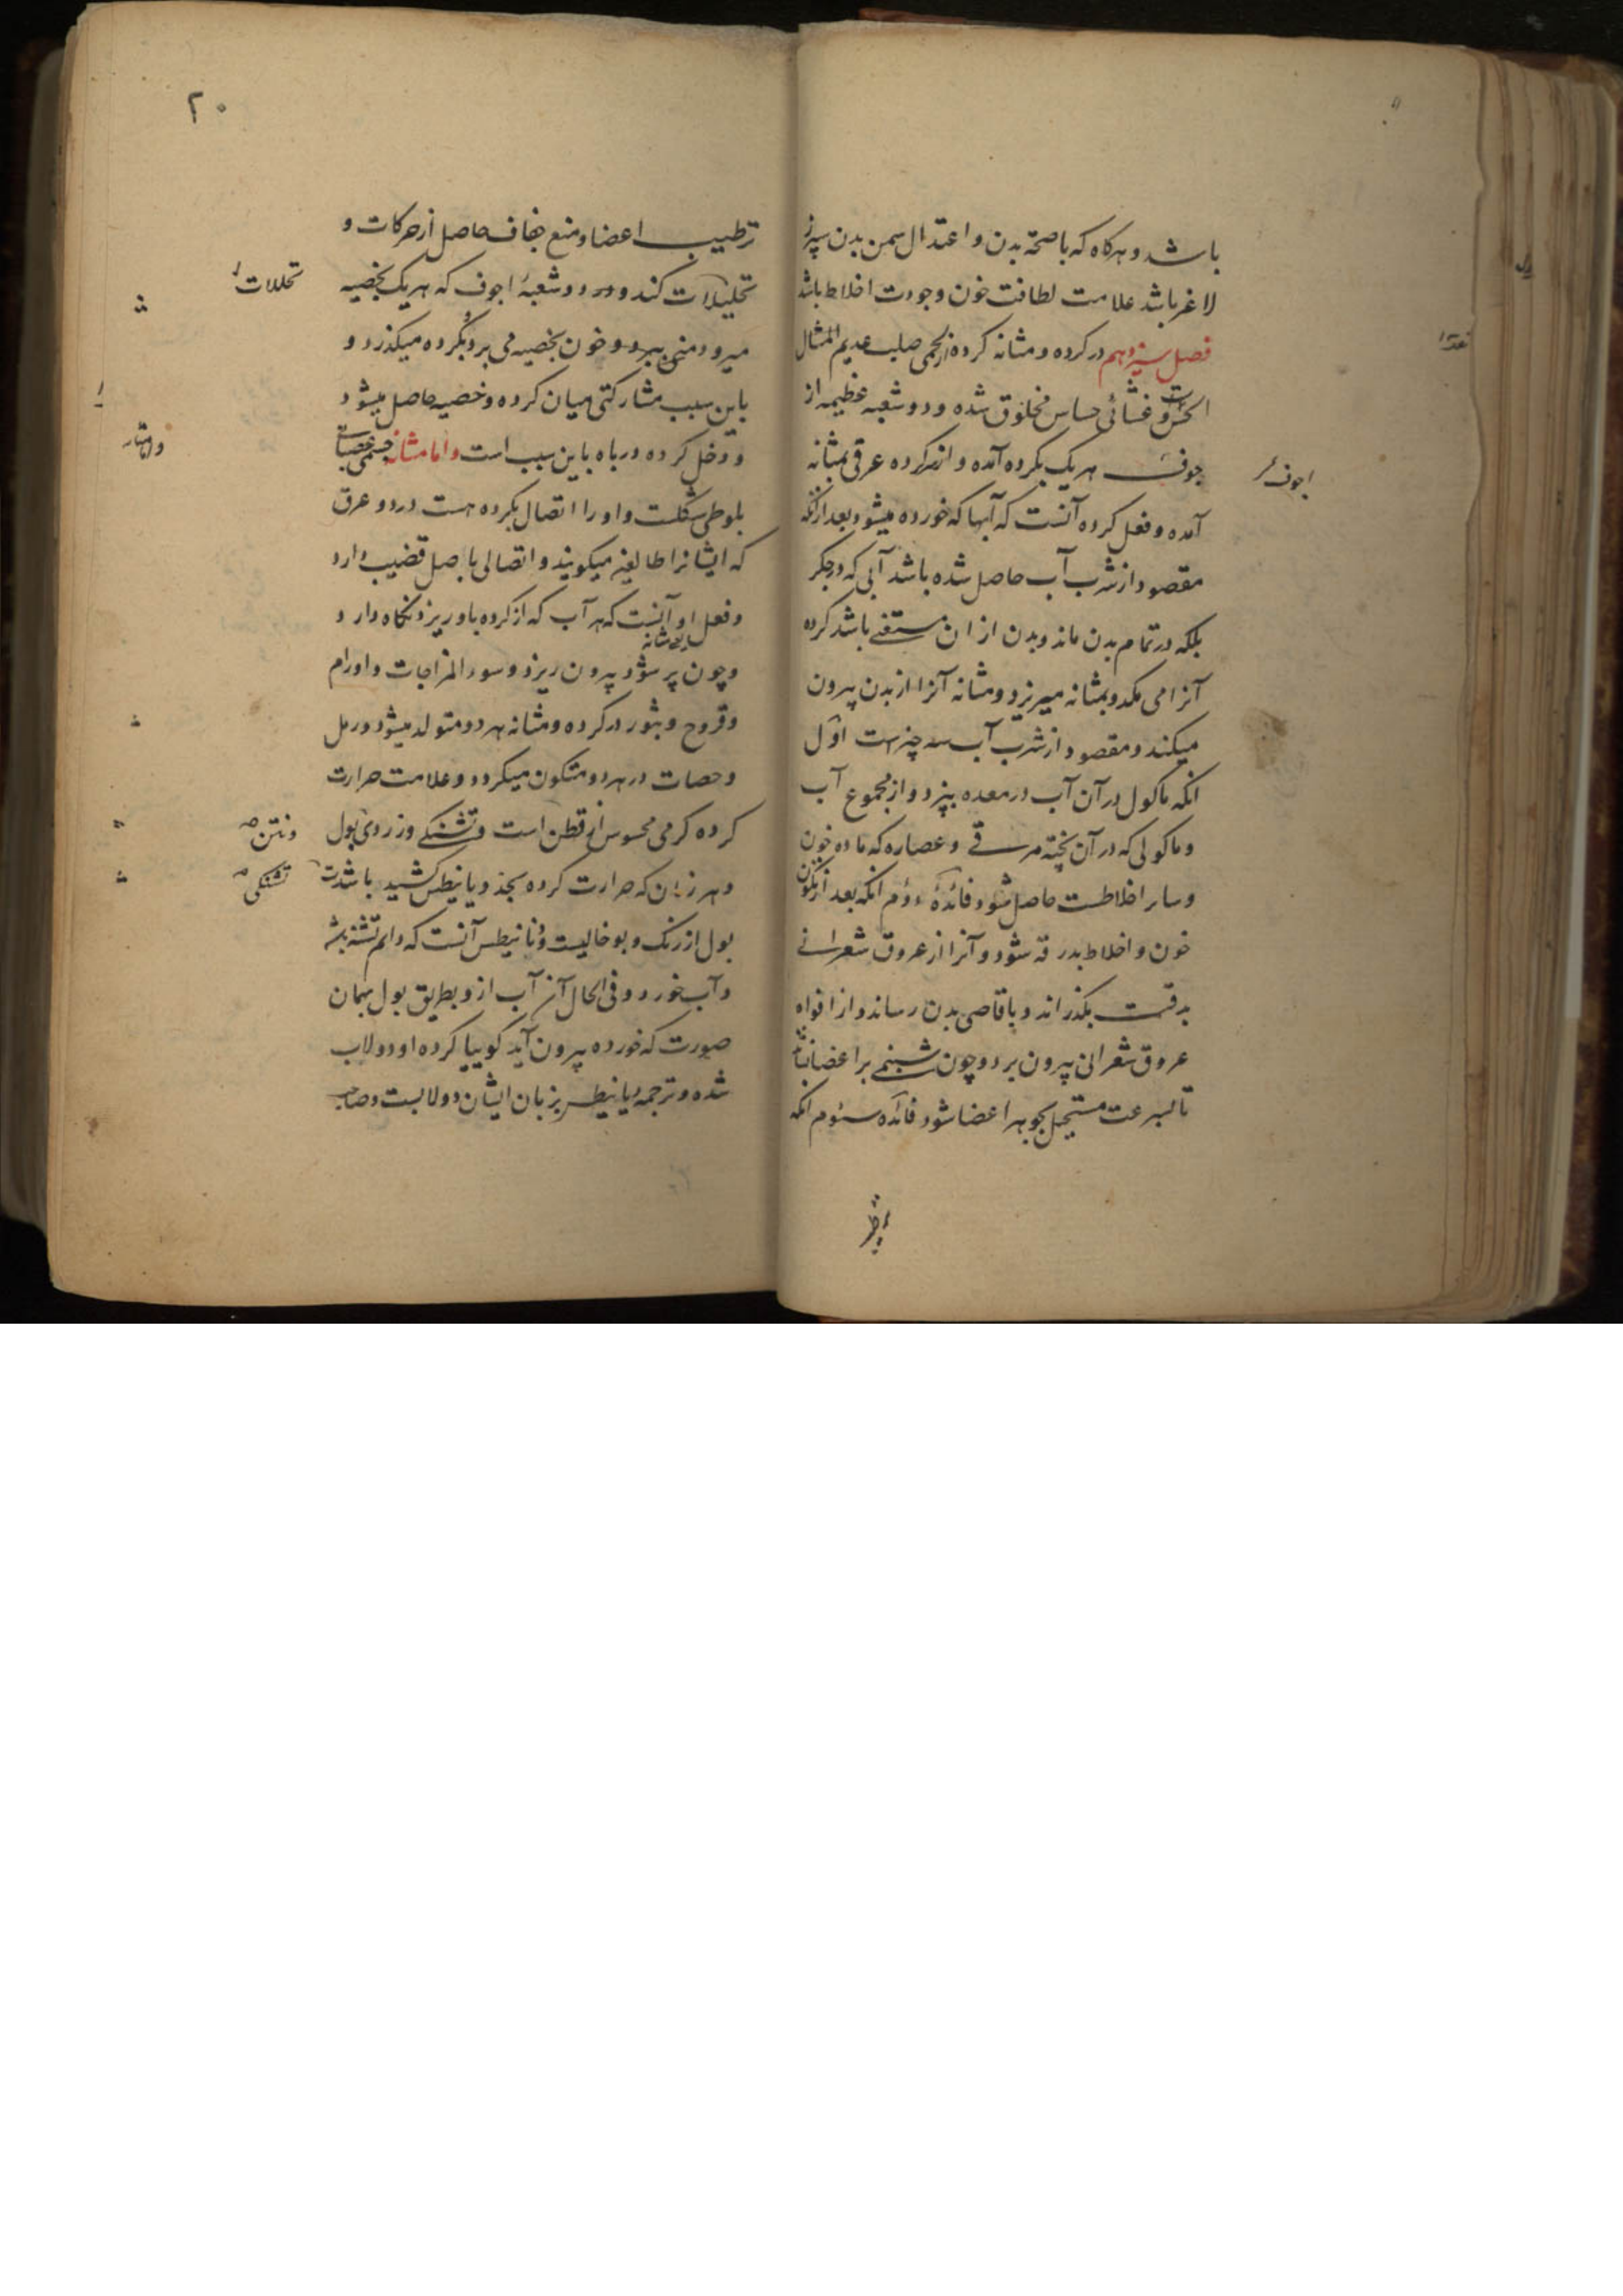 باشد و هرکاه که با صحة بدن و اعتدال سمن بدن سپرز
لاغر باشد علامت لطافت خون و جودت اخلاط باشد
فصل سیزدهم در کرده و مثانه کرده از لحمی صلب عدیم المثال
و غشائی حساس مخلوق شده و دو شعبه عظیمه از
جوف هر یک بکرده آمده و از هر کرده عرقی بمثانه
اجوف
آمده و فعل کرده آنست که آبها که خورده میشود بعد ازانکه
مقصود از شرب آب حاصل شده باشد آبی که در جکر
بلکه در تمام بدن ماند و بدن از ان مستغنی باشد کرده
آنرا می مکد و بمثانه میریزد و مثانه آنرا از بدن بیرون
میکند و مقصود از شرب آب سه چیز است اول
انکه ماکول در آن آب در معده بپزد و از مجموع آب
و ماکولی که در آن پخته مرقی و عصاره که ماده خون
و سایر اخلاطست حاصل شود فائدهٔ دوم انکه بعد از تکون
خون و اخلاط بدرقه شود و آنرا از عروق شعرانی
بدقت بکذراند و باقاصی بدن رساند و از افواه
عروق شعرانی بیرون برد و چون شبنمی بر اعضا
تا بسرعت مستحیل بجوهر اعضا شود فائده سئوم انکه
۲۰
ترطیب اعضا و منع جفاف حاصل از حرکات و
تحلیلات کند و در دو شعبهٔ اجوف که هر یک بخصیه
تحللات
میرود منی میبرد و خون بخصیه می برد بکرده میکذرد و
باین سبب مشارکتی میان کرده و خصیه حاصل میشود
و دخل کرده در باه باین سبب است و اما مثانه جسمی عصبانی
بلوطی شکلست و او را اتصال بکرده هست در دو عرق
که ایشانرا طالعین میکویند و اتصالی باصل قضیب دارد
و فعل او آنست که هر آب که از کرده باو ریزد نکاه دارد
و چون پر شود بیرون ریزد و سوء المزاجات و اورام
و قروح و بثور در کرده و مثانه هر دو متولد میشود و رمل
و حصات در هر دو متکون میکردد و علامت حرارت
کرده کرمی محسوس از قطن است و تشنکی و زردی بول
و نتن
و هر زمان که حرارت کرده بحد دیانیطس کشید باشد
تشنکی
بول از رنک و بو خالیست و دیانیطس آنست که دایم تشنه باشد
و آب خورد و فی الحال آن آب از و بطریق بول بهمان
صورت که خورده بیرون آید کوییا کرده او دولاب
شده و ترجمه دیانیطس بزبان ایشان دولابست و صاحب